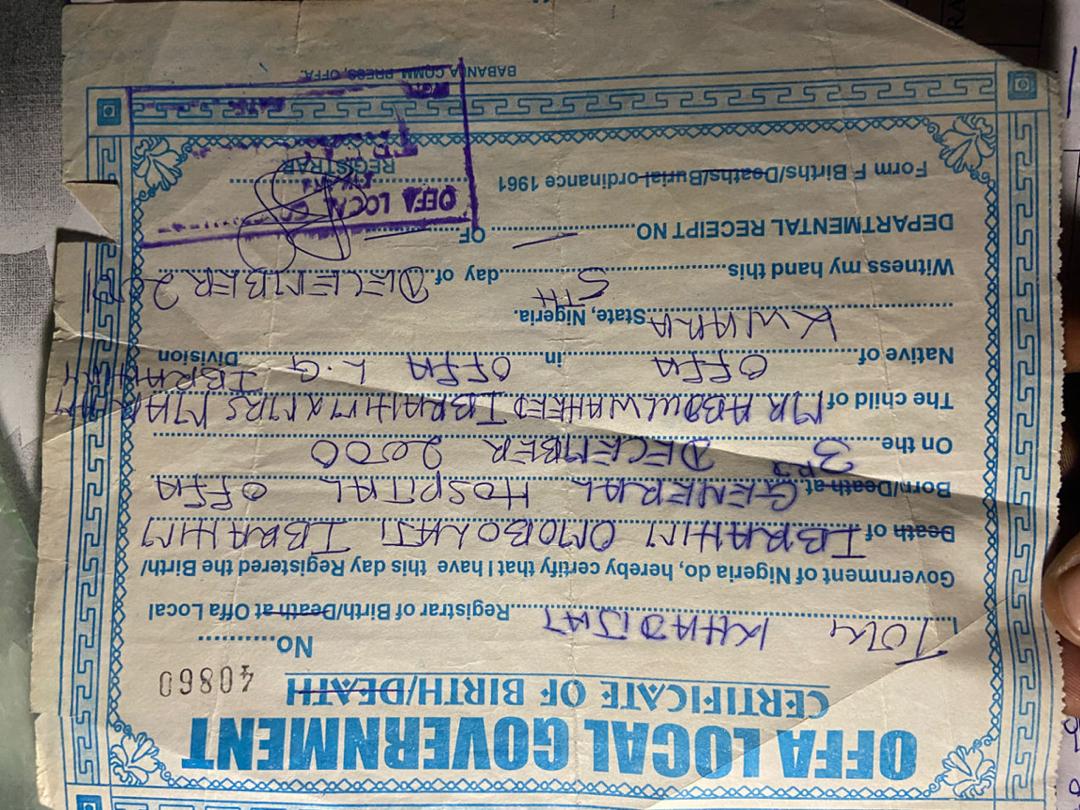 OFFA LOCAL GOVERNMENT
CERTIFICATE OF BIRTH/DEATH
40860
No..........
I....Toki KHADIJAT.....Registrar of Birth/Death at Offa Local
Government of Nigeria do, hereby certify that I have this day Registered the Birth/
Death of IBRAHIM OMOBOLAJI IBRAHIM
Born/Death at. GENERAL HOSPITAL OFFA.
On the... 3RD DECEMBER 2000
The child of MR ABDULWAHEED IBRAHIM & MRS MARIAM
IBRAHIM
Native of.......OFFA.......in...OFFA L.G...Division
KWARA State, Nigeria.
Witness my hand this.......5TH.......day of..DECEMBER
DEPARTMENTAL RECEIPT NO.......—....... OF.......—
OFFA LOCAL
Form F Births/Deaths/Burial ordinance 1961
REGISTRAR
BABANLA COMM. PRESS, OFFA.